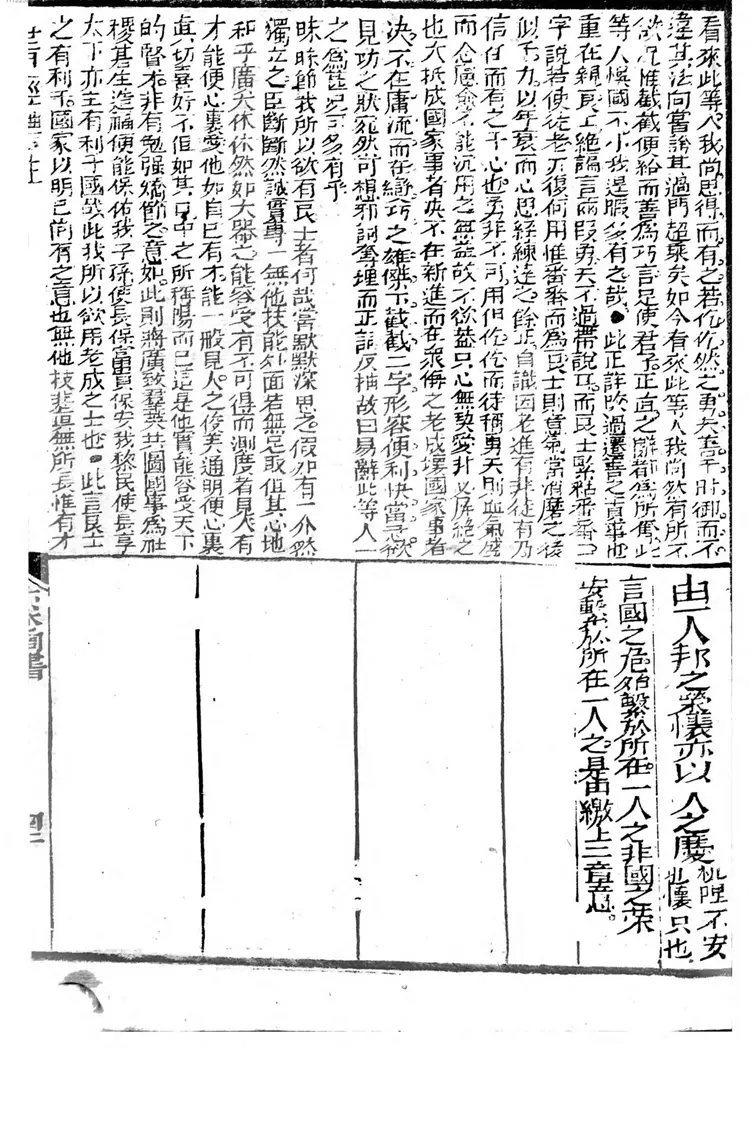 看來此等人我尚思得而有之若仡仡然之勇夫善射御而不
違其法向嘗說其過門超乘矣如今看來此等人我尚然有所不
欲況惟截截便給而善為巧言足使君子正直之辭都為所奪此
等人悞國不小我遑暇多有之哉●此正詳改過遷善之實事也
重在親良士絕諞言兩段勇夫不過帶說耳而良士
字說若使徒老亦復何用惟番番而為良士則意氣當消磨之後
似乎力以年衰而心思經練達之餘止自識因老進有非徒有乃
信任而有之于心也勇非不可用但仡仡而徒稱勇夫則血氣盛
而念慮愈不能沉用之無益故不欲茲只心無契愛非必屏絕之
也大抵成國家事者決不在新進而在衆侮之老成壞國家事者
決不在庸流而在變巧之雄傑下截截二字形容便利快當急欲
見功之狀宛然可想邪詞奪理而正詞反拙故曰易辭此等人一
之為甚況可多有乎
昧昧節我所以欲有良士者何哉嘗默默深思之假如有一介然
獨立之臣斷斷然誠實專一無他技能外面若無足取但其心地
和平廣大休休然如大器之能容受有不可得而測度者見人有
才能便心裏愛他如自己有才能一般見人之俊美通明便心裏
真切喜好不但如其口中之所稱揚而已這是他實能容受天下
的賢才非有勉强矯飾之意如此則將廣致羣英共圖國事為社
稷甚生造福便能保佑我子孫使長保富貴保安我黎民使長享
太下亦主有利于國哉此我所以欲用老成之士也●此言良士
之有利于國家以明已尚有之意也無他技悲真無所長惟有才
由一人邦之榮懷亦以一人之慶 杌隉不安
也懷只也
言國之危殆繫於所在一人之非國之榮
安繫於所在一人之是由繳上三章意